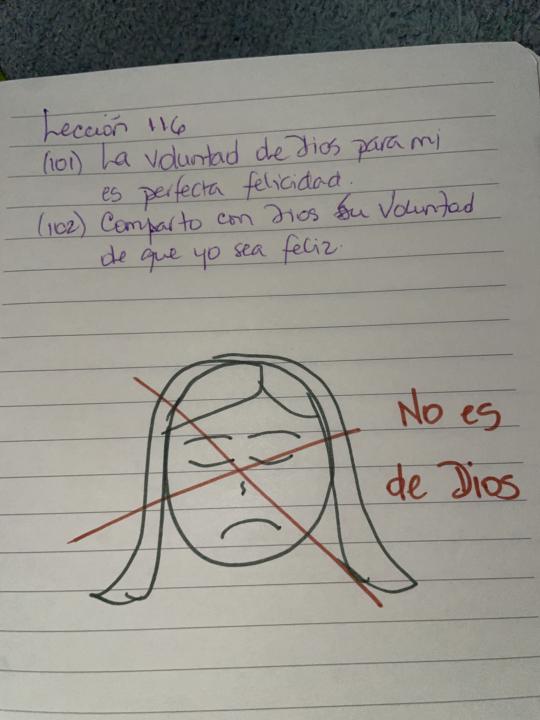 Lección 116
(101) La voluntad de Dios para mi
es perfecta felicidad.
(102) Comparto con Dios su Voluntad
de que yo sea feliz.
No es
de Dios